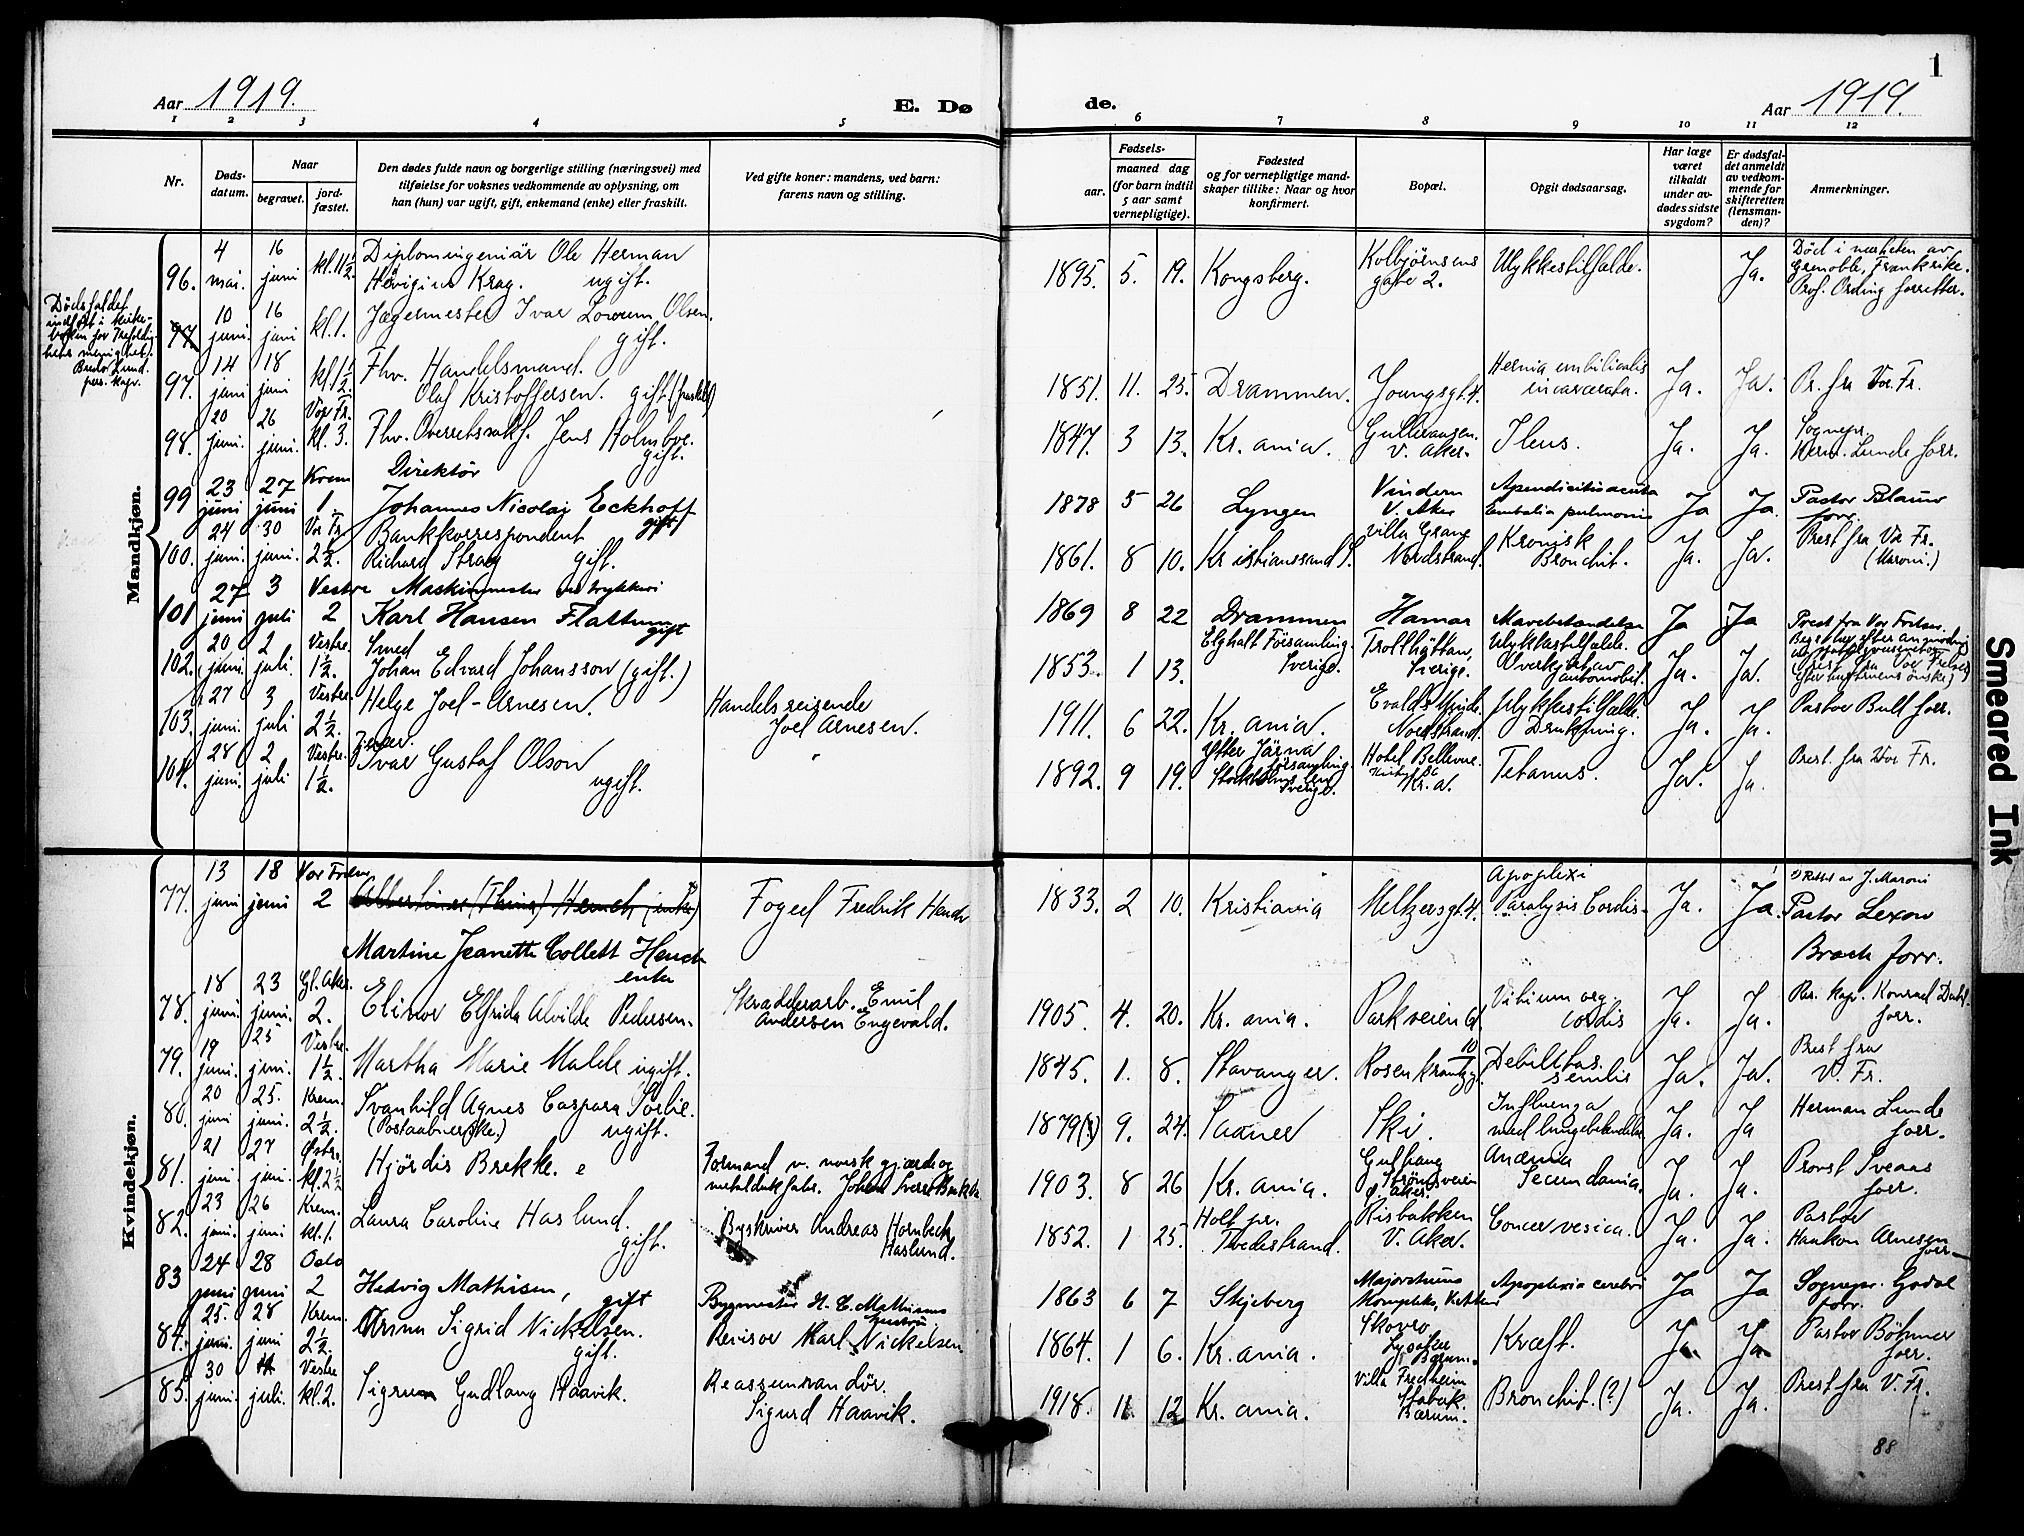 1
Aar 1919.
E. Dø
de.
Aar 1919.
1 2 3 4 5 6 7 8 9 10 11 12
Nr.
Døds-
datum.
Naar
begravet.
jord-
fæstet.
Den dødes fulde navn og borgerlige stilling (næringsvei) med
tilføielse for voksnes vedkommende av oplysning, om
han (hun) var ugift, gift, enkemand (enke) eller fraskilt.
Ved gifte koner: mandens, ved barn:
farens navn og stilling.
Fødsels-
aar.
maaned dag
(for barn indtil
5 aar samt
vernepligtige).
Fødested
og for vernepligtige mand-
skaper tillike: Naar og hvor
konfirmert.
Bopæl.
Opgit dødsaarsag.
Har læge
været
tilkaldt
under av-
dødes sidste
sygdom?
Er dødsfal-
det anmeldt
av vedkom-
mende for
skifteretten
(lensman-
den)?
Anmerkninger.
Mandkjøn.
96. 4 mai. 16 juni kl. 1½. Diplomingeniär Ole Herman
Høvigius Krag. ugift. 1895. 5. 19. Kongsberg. Kolbjørnsens gate 2. Ulykkestilfælde. Ja. Død i nærheten av Grenoble, Frankrike. Prof. Ording forretter.
Dødsfaldet
indført i kirke-
boken for Trefoldig-
hets menighet.
97. 10 juni. 16 juni kl. 1. Jægermester Ivar Olsen.
gift.
97. 14 juni 18 juni kl. 1½ Fhv. Handelsmand.
Olaf Kristoffersen. gift. 1851. 11. 25. Drammen. Youngsgt. 4. Hernia umbilicalis incarcerata. Ja. Ja. Pr. fra Vor Fr.
98. 20 juni. 26 juni. Vor Fr. kl. 3. Fhv. Overretssakf. Jens Holmboe.
gift. 1847. 3 13. Kr. ania. V. Aker. Ileus. Ja. Ja. Sognepr. Herm. Lunde forr.
99 23 juni 27 juni Krem 1. Direktør
Johannes Nicolai Eckhoff
gift 1878 5 26 Lyngen Vindern V. Aker Apendicitis acuta Embolia pulmonis Ja Ja. Pastor Blauw forr.
100. 24 juni. 30 juni. Vor Fr. 2½. Bankkorrespondent
Richard Stray gift. 1861. 8 10. Kristianssand S. Villa Grane Nordstrand. Kronisk Bronchit. Ja. Ja. Prest fra Vor Fr. (Maroni.)
101 27 juni 3 juli Vestre 2 Maskinmester ved trykkeri
Karl Hansen Flattum
gift 1869 8 22 Drammen Hamar Mavebetændelse Ja Ja Prest fra Vor Frelser.
102. 20 juni. 2 juli. Vestre. 1½. Smed
Johan Edvard Johansson (gift.) 1853. 1 13. Elghult Församling Sverige. Trollhättan, Sverige. Ulykkestilfælde. Overkjørt av automobil. Ja. Ja.
103. 27 juni. 3 juli Vestre. 2½. Helge Joel-Arnesen. Handelsreisende
Joel Arnesen. 1911. 6 22. Kr. ania. Nordstrand. Ulykkestilfælde. Drukning. Ja. Ja. Pastor Bull forr.
104. 28 juni. 2 juli Vestre. 1½. Ivar Gustaf Olson
ugift. 1892. 9 19. Ytter Järna församling. Stockholms län Sverige. Hotel Bellevue. Kr. a. Tetanus. Ja. Ja. Prest fra Vor Fr.
Kvindekjøn.
77. 13 juni 18 juni Vor Frels. 2 Martine Jeanette Collett Hench
enke Foged Fredrik Hench 1833. 2 10. Kristiania Meltzersgt. 4. Apoplexi Paralysis Cordis. Ja. Ja. 1) Rettet av J. Maroni Pastor Lexow Brach forr.
78. 18 juni. 23 juni. Gl. Aker. 2. Elinor Elfrida Alvilde Pedersen. Skrædderarb. Emil
Andersen Engevald. 1905. 4. 20. Kr. ania. Parkveien Vitium org cordis Ja. Ja. Res. kap. Konrad Dahl forr.
79. 19 juni. 25 juni. Vestre. 1½. Martha Marie Malde ugift. 1845. 1. 8. Stavanger. Rosenkrantzg. 10 Debilitas senilis Ja. Ja. Prest fra V. Fr.
80. 20 juni 25. juni. Krem. 2½. Svanhild Agnes Caspara Sørlie.
(Postaabnerske.) ugift. 1879(?) 9. 24. Saaner Ski. Influenza med lungebetændelse. Ja. Ja Herman Lunde forr.
81. 21 juni. 27 juni. Østre. kl. 2½ Hjördis Brekke. Formand v. norsk gjærde og
metaldukfabr. Johan Sverre Brekke 1903. 8 26 Kr. ania. Strömsveien Ø. Aker. Anæmia Secundaria. Ja. Ja. Provst Sveaas forr.
82. 23 juni. 26 juni. Krem. kl. 1. Laura Caroline Haslund.
gift. Byskriver Andreas Hornbech
Haslund. 1852. 1 25. Holt pr. Tvedestrand. Risbakken V. Aker. Cancer vesica. Ja. Ja. Pastor Haakon Arnesen forr.
83 24 juni 28 juni Oslo 2 Hedvig Mathisen,
gift Bygmester H. C. Mathisens hustru. 1863 6 7 Skjeberg Majorstuens kompleks, V. Aker Apoplexia cerebri Ja Ja Sognepr. Godal forr.
84. 25. juni. 28 juni Krem. 2½. Anna Sigrid Nickelsen.
gift. Revisor Karl Nickelsen 1864. 1 6. Kr. ania. Skovro Lysaker Bærum. Kræft. Ja. Ja. Pastor Böhmer forr.
85. 30 juni. juli. Vestre kl. 2. Sigrun Gudlaug Haavik. Reassurandör.
Sigurd Haavik. 1918. 11. 12 Kr. ania. Villa Fredheim Stabæk. Bærum. Bronchit. (?) Ja. Ja. Prest fra V. Fr.
88
Smeared Ink